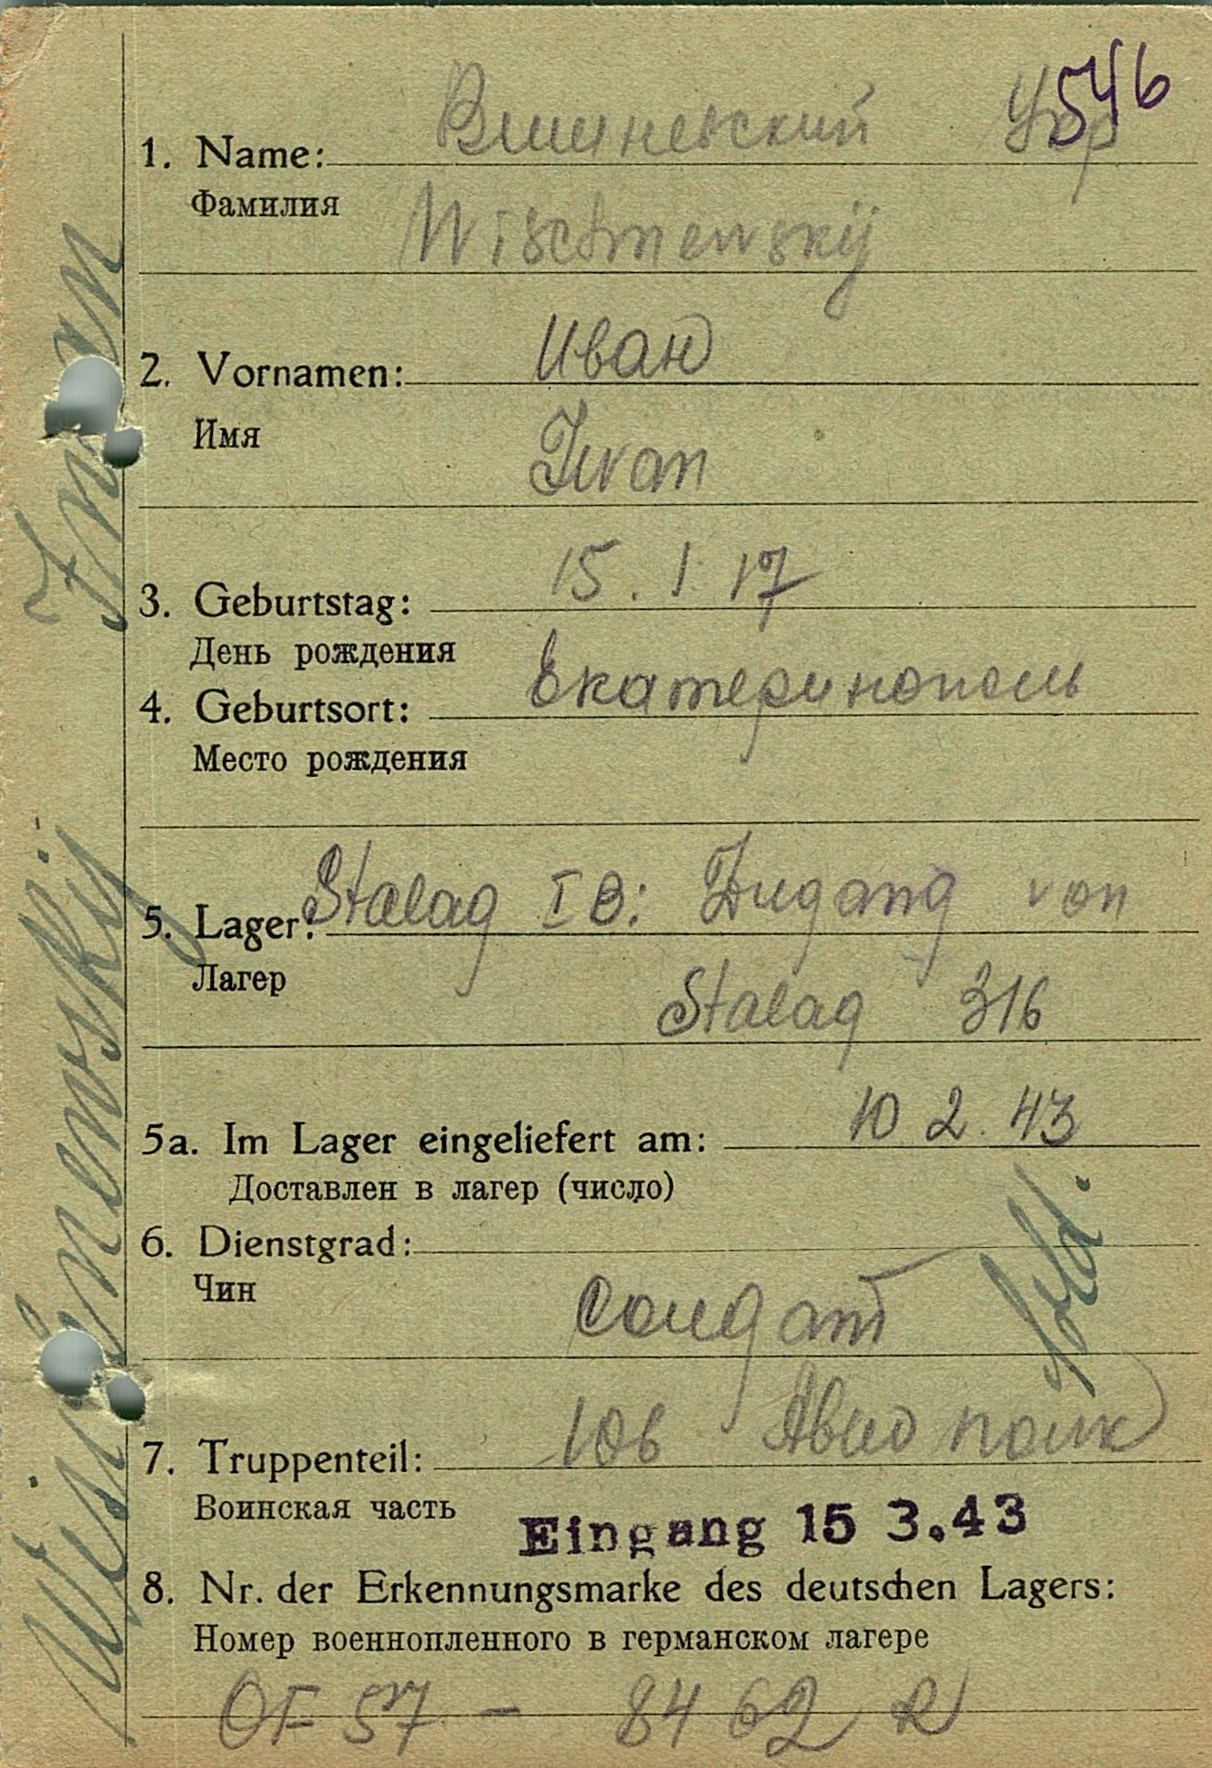 546
Вишневский Укр
1. Name:
Фамилия
Wischnewskij
Иван
2. Vornamen:
Имя
Iwan
15. 1. 17
3. Geburtstag:
День рождения
Екатеринополь
4. Geburtsort:
Место рождения
5. Lager: Stalag IB: Zugang von
Лагер
Stalag 316
5a. Im Lager eingeliefert am: 10 2. 43
Доставлен в лагер (число)
6. Dienstgrad:
Чин
солдат
Sold.
7. Truppenteil: 106 Авио полк
Воинская часть
Eingang 15 3.43
8. Nr. der Erkennungsmarke des deutschen Lagers:
Номер военнопленного в германском лагере
OF 57 - 8462 R
Wischnewskij Iwan